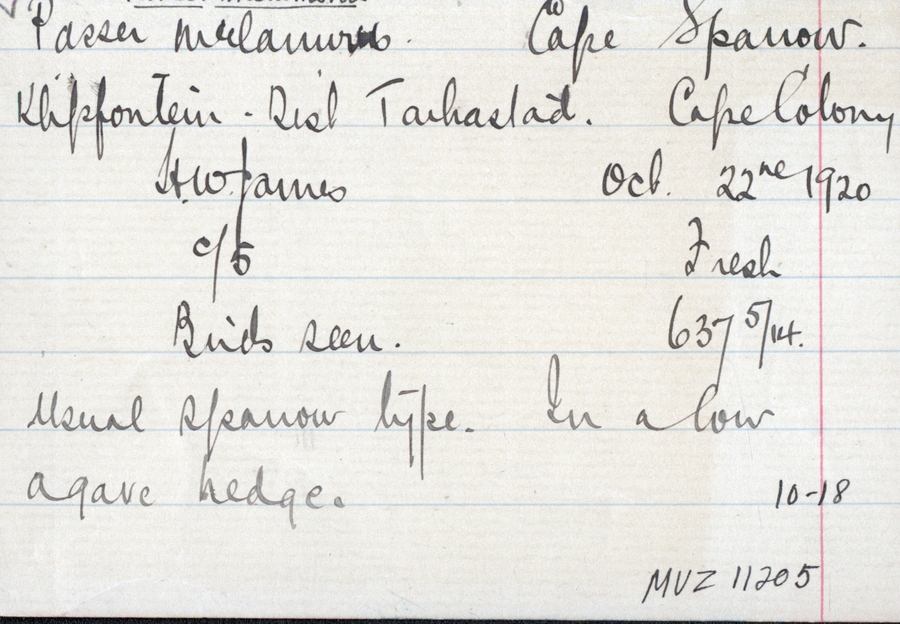 Passer melanurus. Cape Sparrow.
Klipfontein - Dist Tarkastad. Cape Colony
H.W. James Oct. 22nd 1920
c/5 Fresh
Birds seen. 637 5/14.
Usual sparrow type. In a low
agave hedge. 10-18
MVZ 11205